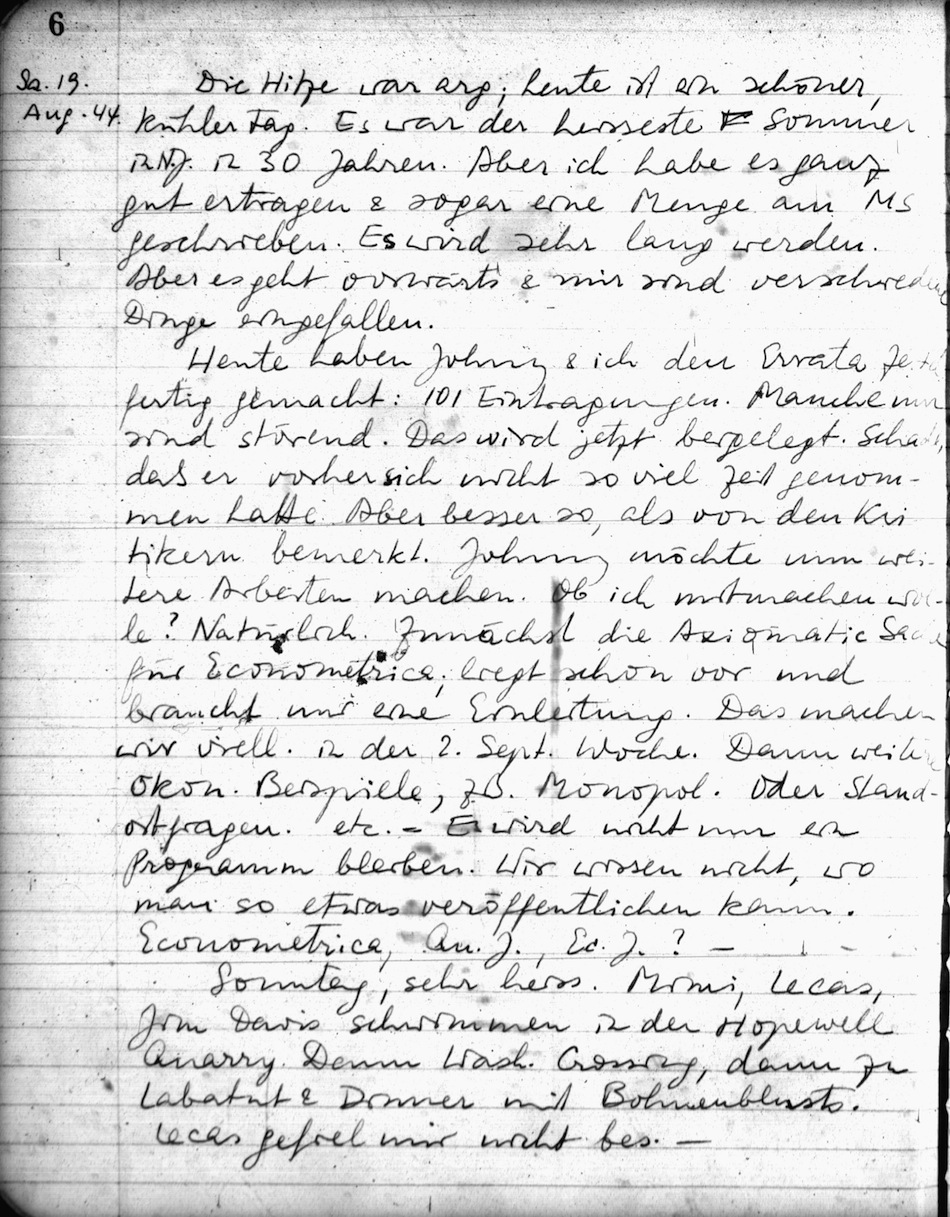 6
Sa. 19.
Aug. 44.
Die Hitze war arg; heute ist ein schöner,
kühler Tag. Es war der heisseste Sommer
in N.J. in 30 Jahren. Aber ich habe es ganz
gut ertragen & sogar eine Menge am MS
geschrieben. Es wird sehr lang werden.
Aber es geht vorwärts & mir sind verschiedene
Dinge eingefallen.
Heute haben Johnny & ich den Errata
fertig gemacht: 101 Eintragungen. Manche nur
sind störend. Das wird jetzt beigelegt. Schade,
daß er vorher sich nicht so viel Zeit genom-
men hatte. Aber besser so, als von den Kri
tikern bemerkt. Johnny möchte nun wei-
tere Arbeiten machen. Ob ich mitmachen wol-
le? Natürlich. Zunächst die Axiomatic Sache
für Econometrica; liegt schon vor und
braucht nur eine Einleitung. Das machen
wir viell. in der 2. Sept. Woche. Dann weitere
ökon. Beispiele, z.B. Monopol. Oder Stand-
ortfragen. etc. – Es wird nicht nur ein
Programm bleiben. Wir wissen nicht, wo
man so etwas veröffentlichen kann.
Econometrica, Qu. J., Ec. J.? –
Sonntag, sehr heiss. Mimi, Lecas,
Jim Davis schwimmen in der Hopewell
Quarry. Dann Wash. Crossing, dann zu
Labatut & Dinner mit Bohnenblusts.
Lecas gefiel mir nicht bes. –